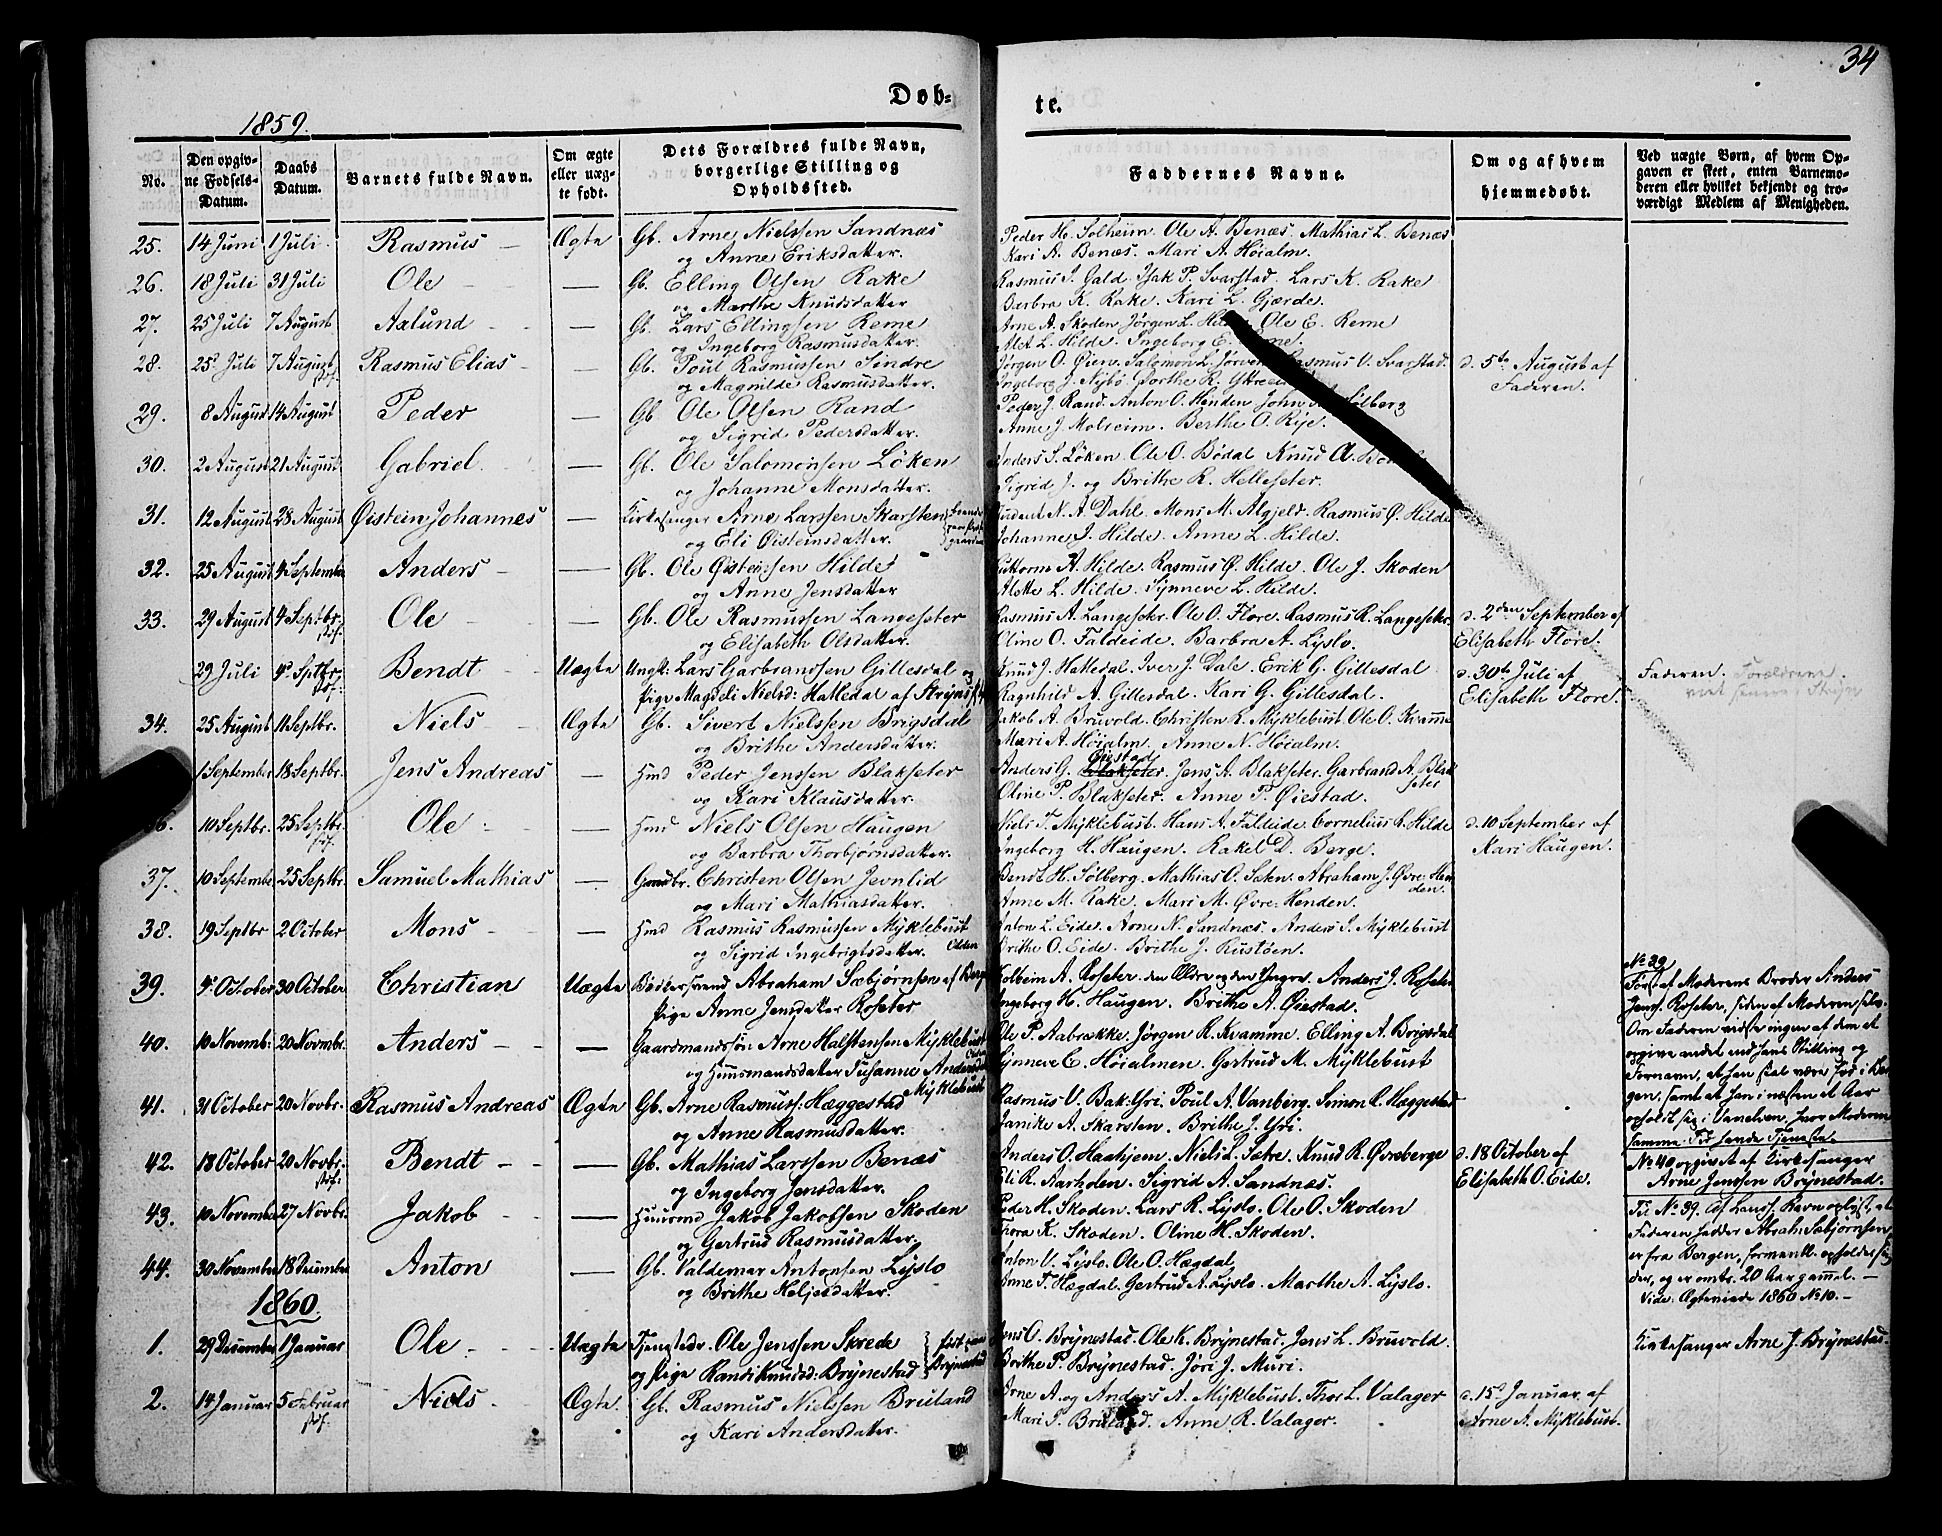 34
Døb-
te.
1859.
No.
Den opgiv-
ne Fødsels-
Datum.
Daabs
Datum.
Barnets fulde Navn.
Om ægte
eller uæg-
te født.
Dets Forældres fulde Navn,
borgerlige Stilling og
Opholdssted.
Faddernes Navne.
Om og af hvem
hjemmedøbt.
Ved uægte Børn, af hvem Op-
gaven er skeet, enten Barnemo-
deren eller hvilket bekjendt og tro-
værdigt Medlem af Menigheden.
25. 14 Juni 1 Juli Rasmus Ægte Gb. Arne Nielssen Sandnæs
og Anne Eriksdatter.
Peder H. Solheim. Ole A. Benæs. Mathias L. Benæs
Kari A. Benæs. Mari A. Høialm.
26. 18 Juli 31 Juli Ole — Gb. Elling Olsen Rake
og Marthe Knudsdatter
Rasmus J. Gald. Isak P. Svarstad. Lars K. Rake
Berbra K. Rake. Kari L. Gjærde.
27. 25 Juli 7 August Aalund — Gb. Lars Ellingsen Reme
og Ingeborg Rasmusdatter.
Arne A. Skoden Jørgen L. Ole E. Reme
Alet L. Hilde. Ingeborg E.
28. 25 Juli 7 August Rasmus Elias — Gb. Poul Rasmussen Sindre
og Magnilde Rasmusdatter.
Jørgen O. Øien. Salomon L. Rasmus V. Svarstad.
Ingeborg J. Nybø. Dorthe R.
d. 5te August af
Faderen.
29. 8 August 14 August Peder — Gb. Ole Olsen Rand
og Sigrid Pedersdatter.
Peder J. Rand. Anton O. Henden John Silberg
Anne J. Molheim. Berthe O. Rye.
30. 2 August 21 August Gabriel. — Gb. Ole Salomonsen Løken
og Johanne Monsdatter.
Anders S. Løken. Ole O. Bødal Knud A.
Sigrid J. og Brithe R. Helleseter.
31. 12 August 28 August Øistein Johannes — Kirkesanger Arne Larssen Skarsten
og Eli Øisteinsdatter.
Student N. A. Dahl. Mons M. Mgjeld. Rasmus Ø. Hilde
Johanne J. Hilde. Anne L. Hilde.
32. 25 August 4 September Anders — Gb. Ole Øistensen Hilde
og Anne Jensdatter
Guttorm A. Hilde. Rasmus Ø. Hilde. Ole J. Skoden
Alette L. Hilde. Synneve L. Hilde.
33. 29 August 4 Septbr. Ole — Gb. Ole Rasmussen Langeseter
og Elisabeth Olsdatter.
Rasmus A. Langeseter. Ole O. Flore. Rasmus R. Langeseter.
Oline O. Faldeide. Barbra A. Lyslo.
d. 2den September af
Elisabeth Flore.
29 Juli 4 Sptbr. Bendt Uægte Ungk: Lars Garbrandsen Gillesdal og
Pige Magdeli Nielsd: Hatledal af Stryn
Knud J. Hatledal. Iver J. Dale. Erik G. Gillesdal
Ragnhild A. Gillesdal. Kari G. Gillesdal.
d. 30te Juli af
Elisabeth Flore.
Faderen. Forældrene
34. 25 August 11 Septbr. Niels Ægte Gb. Sivert Nielssen Brigsdal
og Brithe Andersdatter.
Jakob A. Bruvold. Christen R. Myklebust. Ole O. Kvamme
Mari A. Høialm. Anne N. Høialm.
1 September 18 Septbr. Jens Andreas — Hmd Peder Jenssen Blakseter
og Kari Klausdatter.
Anders G. Øiestad Blakseter. Jens A. Blakseter. Garbrand A. Blak
seter
Oline P. Blakseter. Anne P. Øiestad.
10 Septbr. 25 Septbr. Ole — Hmd Niels Olsen Haugen
og Barbra Thorbjørnsdatter.
Niels T. Myklebust. Hans A. Faldeide. Cornelius R. Hilde
Ingeborg H. Haugen. Rakel D. Berge.
d. 10 September af
Kari Haugen.
37. 10 September 25 Septbr. Samuel Mathias — Gaardbr. Christen Olsen Jevnlid
og Mari Mathiasdatter.
Bendt H. Solberg. Mathias O. Sæten. Abraham J. Øvre Hen
den.
Anne M. Rake. Mari M. Øvre Henden.
38. 19 Septbr 2 October Mons — Hmd Rasmus Rasmussen Myklebust
Olden
og Sigrid Ingebrigtsdatter.
Anton L. Eide. Arne N. Sandnæs. Anders S. Myklebust
Brithe O. Eide. Brithe J. Rustøen.
39. 4 October 30 October Christian Uægte Bødkersvend Abraham Sæbjørnsen af Bergen
Pige Anne Jensdatter Roseter
Kolbein A. Roseter. den Ældre og den Yngre. Anders J. Roseter
Ingeborg H. Haugen. Brithe A. Øiestad.
No 39
Først af Moderens Broder Andreas
Jens. Roseter, siden af Moderen selv.
Om Faderen vidste ingen af dem at
opgive andet end hans Stilling og
Fornavn, at han skal være fød i Ber
gen, samt at han i næsten et Aar
opholdt sig i Vanelven, hvor Moderen
samme Tid havde Tjeneste.
40. 10 Novemb: 20 Novmbr. Anders — Gaardmandssøn Arne Halstensen Myklebust
Olden
og Huusmandsdatter Susanne Andersdatter
Myklebust
Ole P. Aabrække. Jørgen R. Kvamme. Elling A. Brigsdal
Synneve C. Høialmen. Gertrud M. Myklebust
No 40 opgivet af Kirkesanger
Arne Jenssen Brynestad.
41. 31 October 20 Novbr. Rasmus Andreas Ægte Gb. Arne Rasmuss: Hæggestad
og Anne Rasmusdatter.
Rasmus V. Bak-Yri. Poul A. Vanberg. Simon R. Hæggestad
Janike A. Skarsten. Brithe J. Yri.
42. 18 October 20 Novbr. Bendt — Gb. Mathias Larssen Benæs
og Ingeborg Jensdatter.
Anders O. Haahjem. Niels L. Sætre. Knud R. Øvreberge
Eli R. Aarholen. Sigrid A. Sandnæs.
d. 18 October af
Elisabeth O. Eide.
43. 10 November 27 Novbr. Jakob — Huusmd Jakob Jakobsen Skoden
og Gertrud Rasmusdatter.
Peder H. Skoden. Lars R. Lyslo. Ole O. Skoden
Thora K. Skoden. Oline H. Skoden.
Til No 39. Af Lensm. Ravn oplyst, at
Faderen hedder Abrah. Sæbjørnsen
er fra Bergen, formentl. opholder sig
der, og er omtr. 20 Aar gammel. —
Vide: Ægteviede 1860 No 10. —
44. 30 November 18 December Anton — Gb. Valdemar Antonsen Lyslo
og Brithe Heljesdatter.
Anton V. Lyslo. Ole O. Hægdal.
Anne T. Hægdal. Gertrud A. Lyslo. Marthe A. Lyslo.
1860.
1. 29 December 1 Januar Ole Uægte Tjenestedr. Ole Jenssen Skrede
og Pige Randi Knudsd. Brynestad
Jens O. Brynestad. Ole K. Brynestad. Jens L. Bruvold.
Brithe P. Brynestad. Jori J. Muri.
Kirkesanger Arne J. Brynestad.
2. 14 Januar 5 Februar Niels Ægte. Gb. Rasmus Nielssen Bruland
og Kari Andersdatter.
Arne A. og Anders A. Myklebust. Thor L. Valager
Mari P. Bruland. Anne R. Valager.
d. 15 Januar af
Arne A. Myklebust.